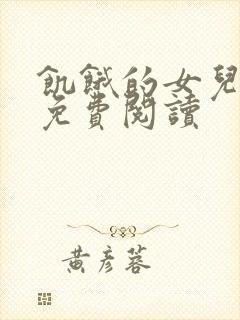 飢餓的女兒
免費閱讀
黃彥蓉